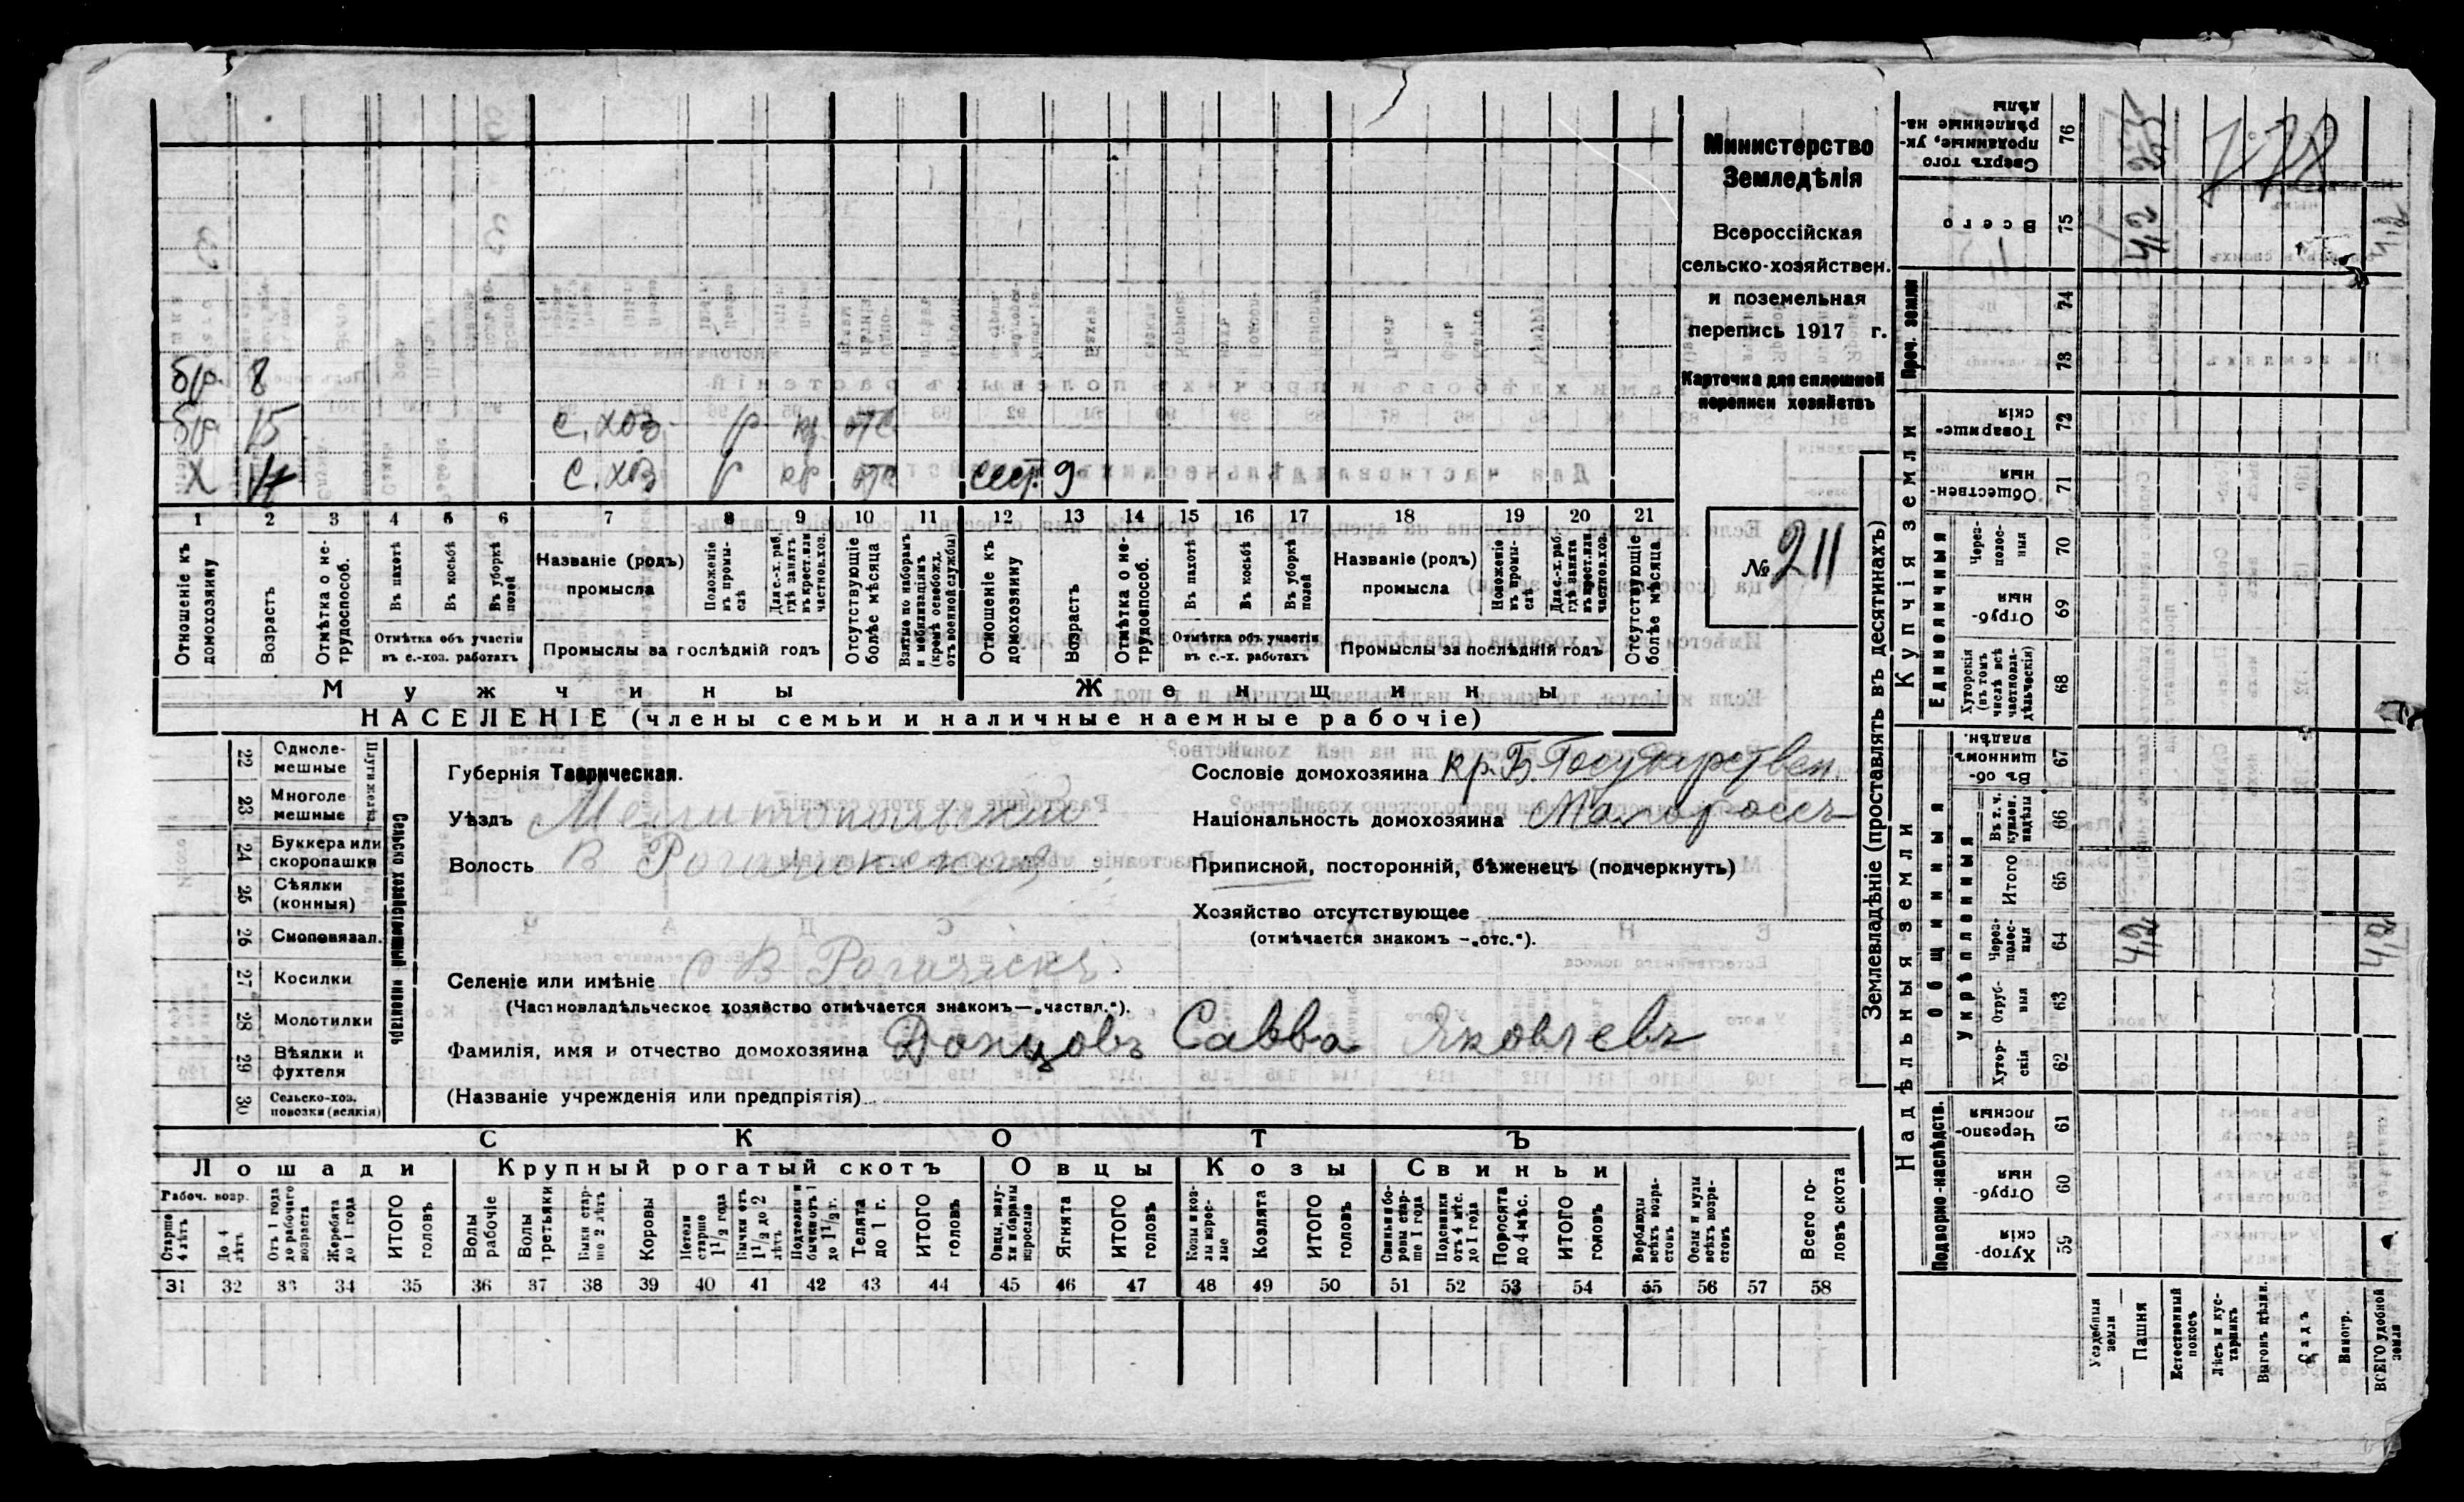 Министерство
Земледѣлія
Всероссійская
сельско-хозяйствен.
и поземельная
перепись 1917 г.
Карточка для сплошной
переписи хозяйствъ
№ 211
бр. 8
бр. 15 с. хоз. р кр отс
Х с. хоз р кр отс сест. 9
1 2 3 4 5 6 7 8 9 10 11 12 13 14 15 16 17 18 19 20 21
Отношеніе къ домохозяину
Возрастъ
Отмѣтка о не-трудоспособ.
Въ пахотѣ
Въ косьбѣ
Въ уборкѣ полей
Отмѣтка объ участіи
въ с.-хоз. работахъ
Названіе (родъ)
промысла
Положеніе въ промы-слѣ
Для с.-х. раб. гдѣ занятъ въ крест. или частнов. хоз.
Промыслы за послѣдній годъ
Отсутствующіе болѣе мѣсяца
Взятые по наборамъ и мобилизаціямъ (кромѣ освобожд. отъ военной службы)
Отношеніе къ домохозяину
Возрастъ
Отмѣтка о не-трудоспособ.
Въ пахотѣ
Въ косьбѣ
Въ уборкѣ полей
Отмѣтка объ участіи
въ с.-х. работахъ
Названіе (родъ)
промысла
Положеніе въ промы-слѣ
Для с.-х. раб. гдѣ занята въ крест. или частнов. хоз.
Промыслы за послѣдній годъ
Отсутствующіе болѣе мѣсяца
Мужчины Женщины
НАСЕЛЕНІЕ (члены семьи и наличные наемные рабочіе)
Сельско хозяйственный инвентарь
22 Одноле-мешные
23 Многоле мешные
24 Буккера или скоропашки
25 Сѣялки (конныя)
26 Сноповязал.
27 Косилки
28 Молотилки
29 Вѣялки и фухтеля
30 Сельско-хоз. повозки (всякія)
Губернія Таврическая.
Уѣздъ Мелитопольскій
Волость В Рогачинская
Селеніе или имѣніе с В. Рогачикъ
(Частновладѣльческое хозяйство отмѣчается знакомъ—„частвл.“).
Фамилія, имя и отчество домохозяина Донцовъ Савва Яковлевъ
(Названіе учрежденія или предпріятія)
Сословіе домохозяина кр. Б. Государствен.
Національность домохозяина Малороссъ
Приписной, посторонній, бѣженецъ (подчеркнуть)
Хозяйство отсутствующее
(отмѣчается знакомъ —„отс.“).
СКОТЪ
Лошади Крупный рогатый скотъ Овцы Козы Свиньи
Рабоч. возр.
Старше 4 лѣтъ
До 4 лѣтъ
Отъ 1 года до рабочаго возраста
Жеребята до 1 года
ИТОГО головъ
Волы рабочіе
Волы третьяки
Быки стар-ше 2 лѣтъ
Коровы
Нетели старше 1 1/2 года
Бычки отъ 1 1/2 до 2 лѣтъ
Подтелки и бычки отъ 1 до 1 1/2 г.
Телята до 1 г.
ИТОГО головъ
Овцы, валу-хи и бараны взрослые
Ягнята
ИТОГО головъ
Козы и коз-лы взрос-лые
Козлята
ИТОГО головъ
Свиньи и бо-ровы стар-ше 1 года
Подсвинки отъ 4 мѣс. до 1 года
Поросята до 4 мѣс.
ИТОГО головъ
Верблюды всѣхъ возра-стовъ
Ослы и мулы всѣхъ возра-стовъ
Всего го-ловъ скота
31 32 33 34 35 36 37 38 39 40 41 42 43 44 45 46 47 48 49 50 51 52 53 54 55 56 57 58
Землевладѣніе (проставлять въ десятинахъ)
Надѣльныя земли
Подворно-наслѣдств.
Хутор-скія 59
Отруб-ныя 60
Черезпо-лосныя 61
Общинныя
Укрѣпленныя
Хутор-скія 62
Отруб-ныя 63
Черезполос-ныя 64
Итого 65
Въ т. ч. куплен. надѣлы 66
Въ об-щинномъ владѣн. 67
Купчія земли
Единоличныя
Хуторскія (въ томъ числѣ всѣ частновла-дѣльческія) 68
Отруб-ныя 69
Черезполос-ныя 70
Обществен-ныя 71
Товарище-скія 72
Проч. земли
73 74
Всего 75
Сверхъ того проданные, ук-рѣпленные на-дѣлы 76
Усадебныя земли
Пашня 4,2 4,2
Естественный покосъ
Лѣсъ и кус-тарникъ
Выгонъ цѣлин.
Садъ
Виногр.
ВСЕГО удобной земли 4,2 4,2